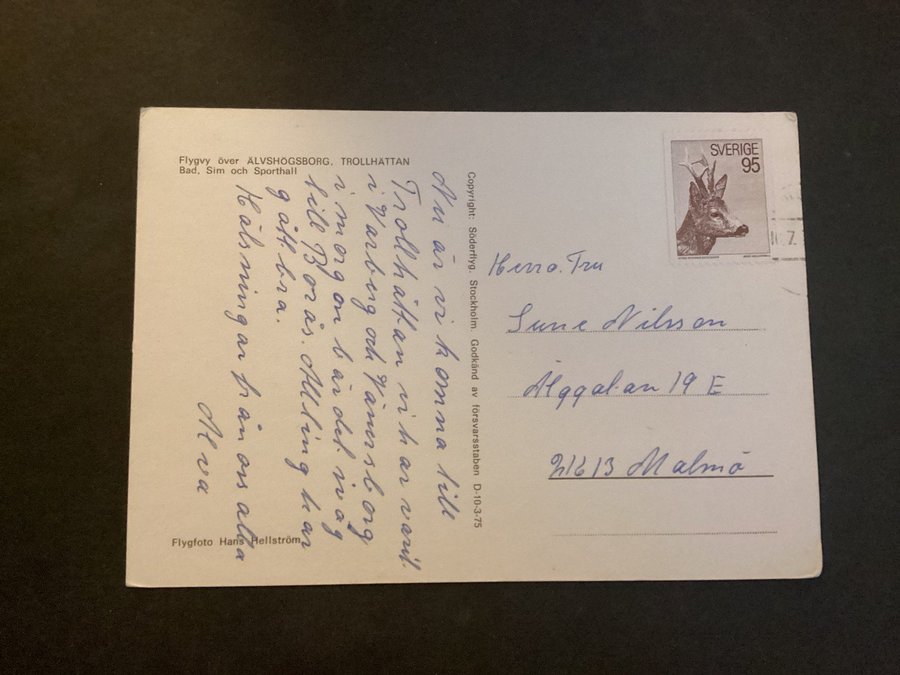 Flygvy över ÄLVSHÖGSBORG, TROLLHÄTTAN
Bad, Sim och Sporthall
Nu är vi komna till
Trollhättan vi har varit
i Varberg och Vänersborg
i morgon bär det iväg
till Borås. Allting har
gått bra.
Hälsningar från oss alla
Alva
Flygfoto Hans Hellström
Copyright: Söderflyg, Stockholm. Godkänd av försvarsstaben D-10-3-75
SVERIGE
95
7
Herro. Fru
Sune Nilsson
Älggatan 19 E
21613 Malmö